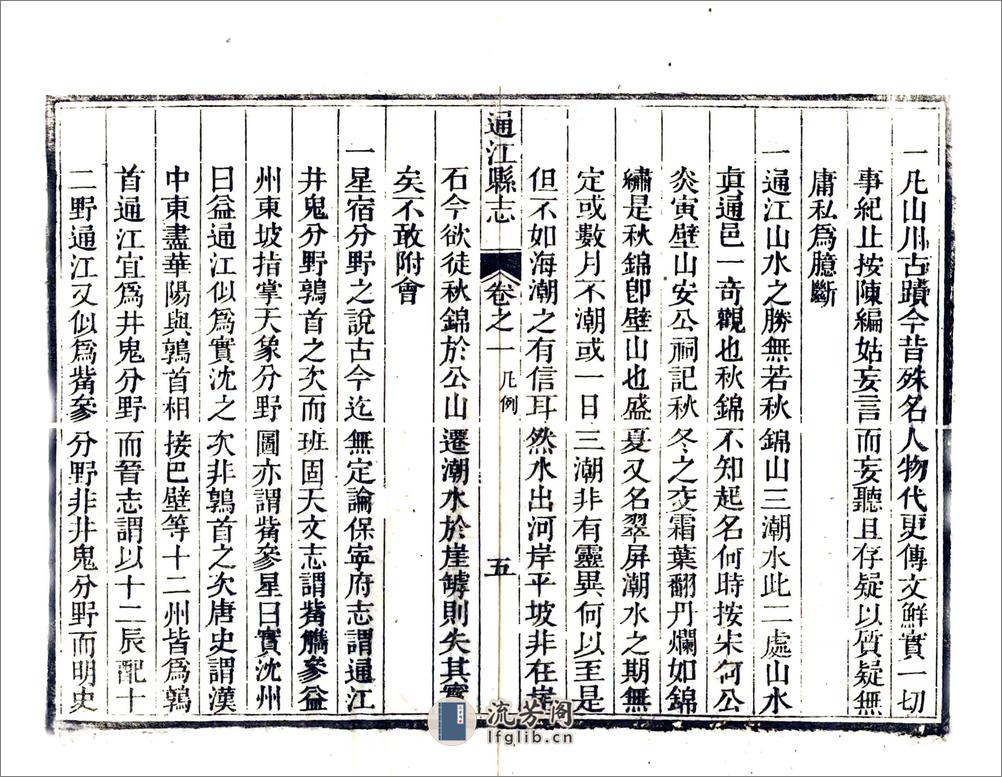 一凡山川古蹟今昔殊名人物代更傳文鮮實一切
事紀止按陳編姑妄言而妄聽且存疑以質疑無
庸私為臆斷
一通江山水之勝無若秋錦山三潮水此二處山水
真通邑一奇觀也秋錦不知起名何時按宋何公
炎寅壁山安公祠記秋冬之交霜葉翻丹爛如錦
繡是秋錦卽壁山也盛夏又名翠屏潮水之期無
定或數月不潮或一日三潮非有靈異何以至是
但不如海潮之有信耳然水出河岸平坡非在崖
通江縣志
卷之一
凡例
五
石今欲徒秋錦於公山遷潮水於崖罅則失其實
矣不敢附會
一星宿分野之說古今迄無定論保寧府志謂通江
井鬼分野鶉首之次而班固天文志謂觜觿參益
州東坡指掌天象分野圖亦謂觜參星曰實沈州
曰益通江似爲實沈之次非鶉首之次唐史謂漢
中東盡華陽與鶉首相接巴壁等十二州皆爲鶉
首通江宜爲井鬼分野而晉志謂以十二辰配十
二野通江又似爲觜參分野非井鬼分野而明史
流芳阁
lfglib.cn